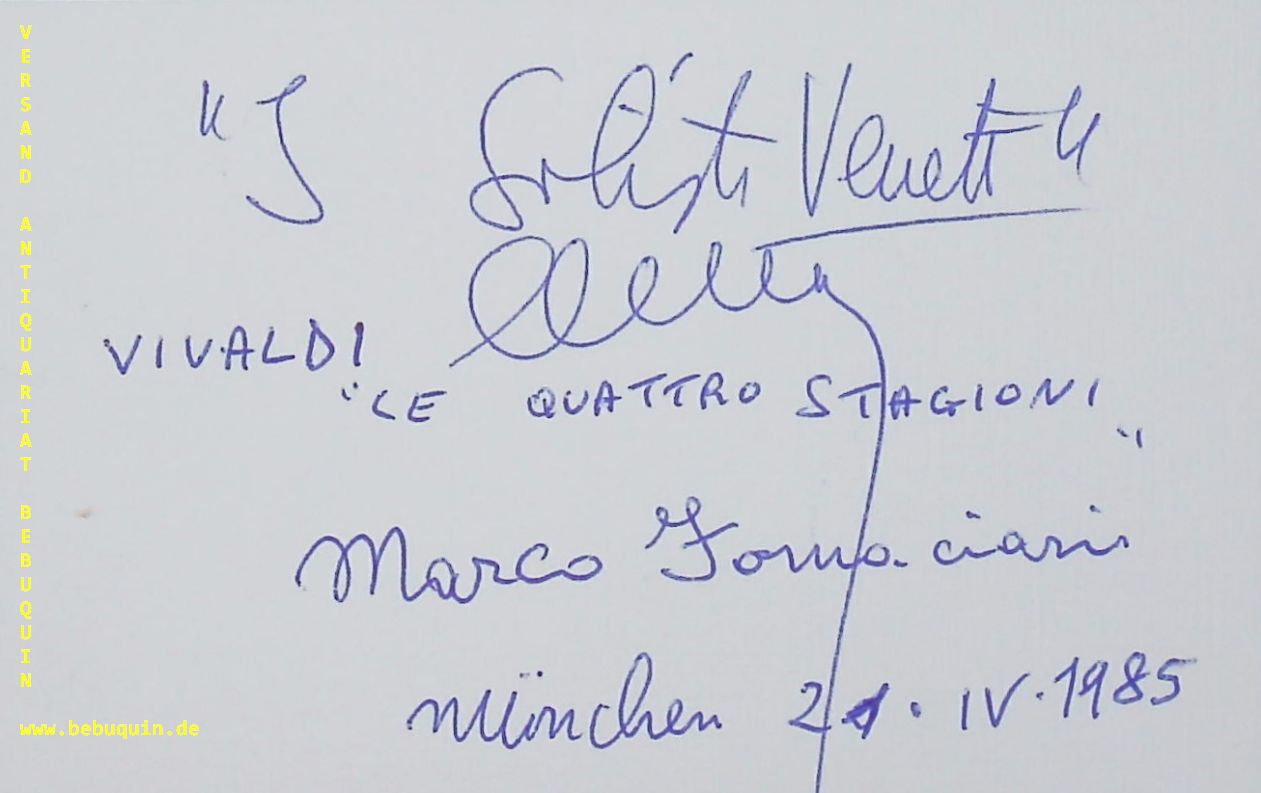 "I Solisti Veneti"
VIVALDI
"LE QUATTRO STAGIONI"
Marco Fornaciari
München 21.IV.1985
VERSAND ANTIQUARIAT BEBUQUIN
www.bebuquin.de